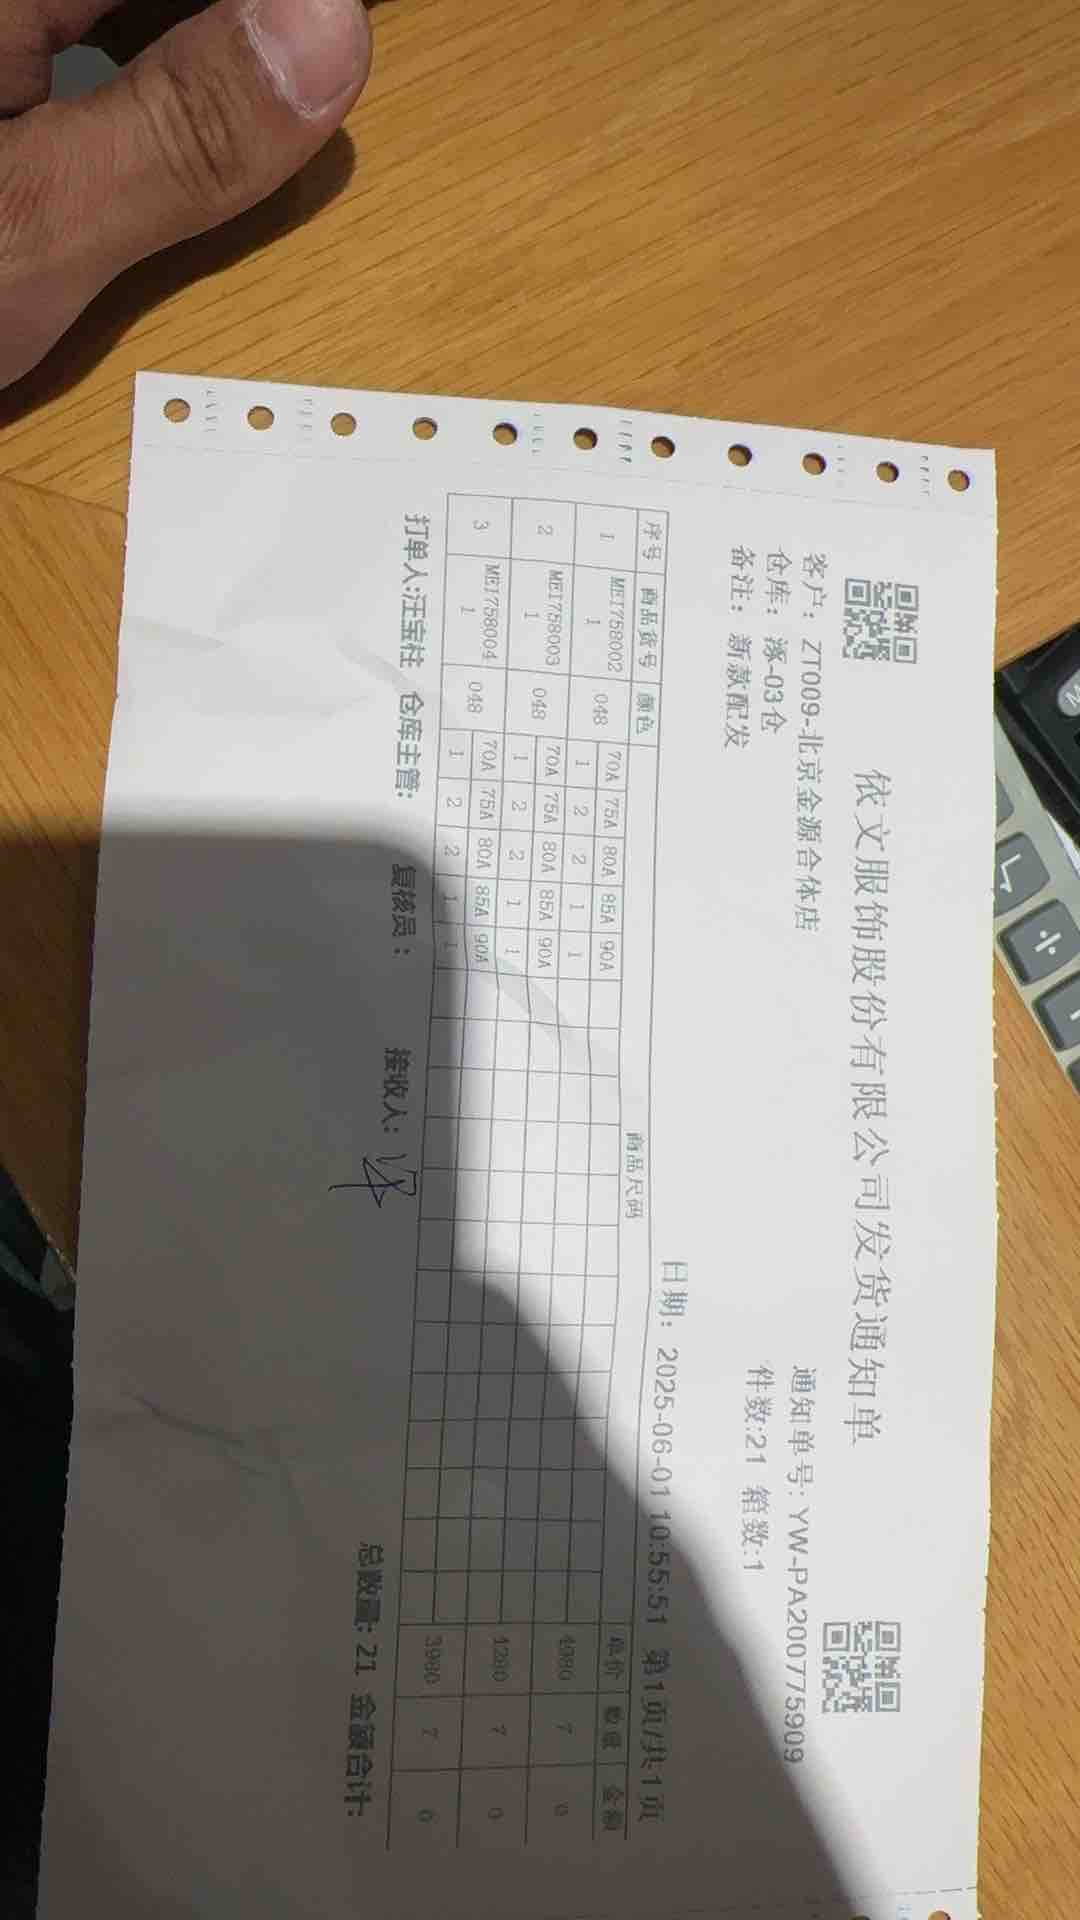 依文服饰股份有限公司发货通知单
客户: ZT009-北京金源合体店 通知单号: YW-PA200775909
仓库: 涿-03仓 件数:21 箱数:1
备注: 新款配发
日期: 2025-06-01 10:55:51 第1页/共1页
序号 商品货号 颜色 商品尺码 单价 数量 金额
1 ME1758002 1 048 70A 75A 80A 85A 90A 4980 7 0
1 2 2 1 1
2 ME1758003 1 048 70A 75A 80A 85A 90A 4280 7 0
1 2 2 1 1
3 ME1758004 1 048 70A 75A 80A 85A 90A 3980 7 0
1 2 2 1 1
打单人:汪宝柱 仓库主管: 复核员: 接收人: 总数量: 21 金额合计: